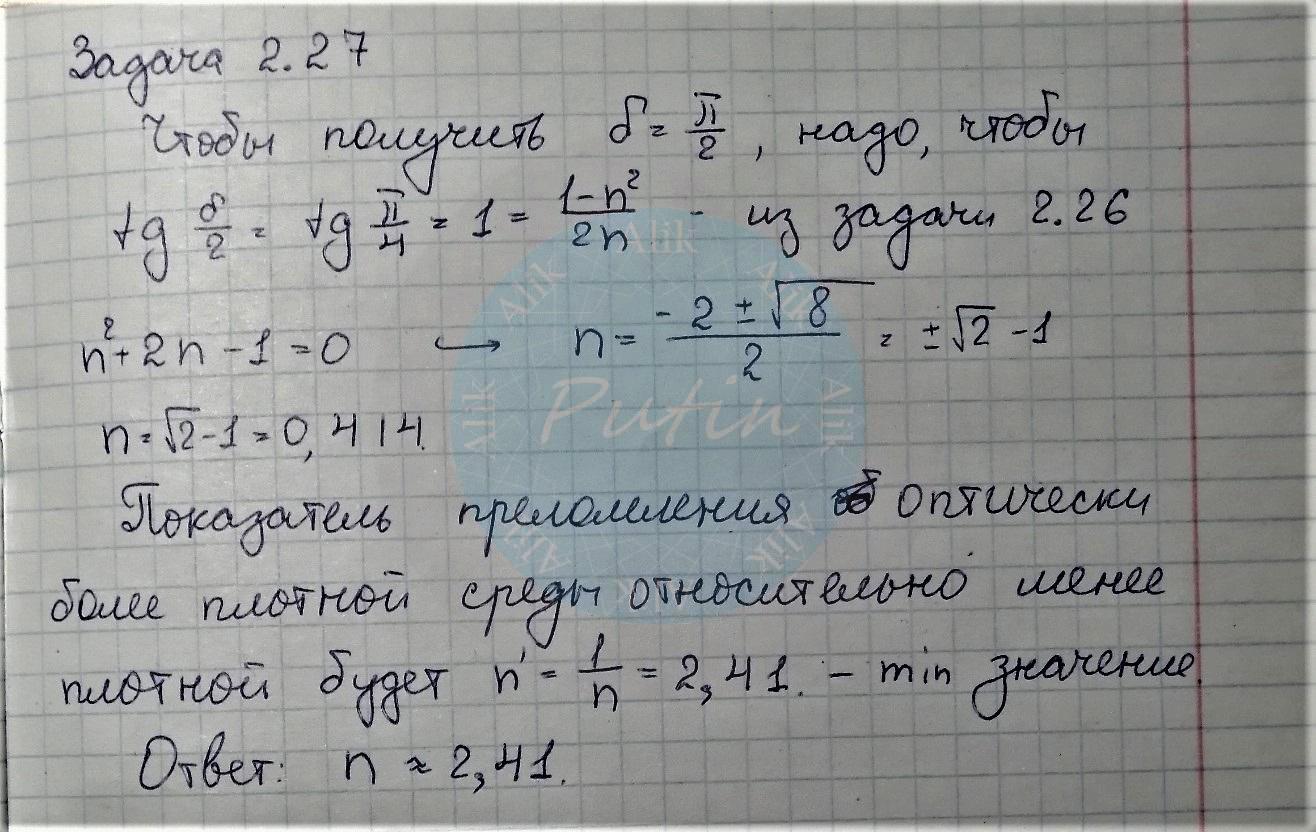 Задача 2.27
Чтобы получить δ = π/2, надо, чтобы
tg δ/2 = tg π/4 = 1 = (1-n²)/2n - из задачи 2.26
n² + 2n - 1 = 0 ↪ n = (-2 ± √8)/2 = ±√2 - 1
n = √2 - 1 = 0,414.
Показатель преломления оптически
более плотной среды относительно менее
плотной будет n' = 1/n = 2,41. - min значение.
Ответ: n ≈ 2,41.
Putin
Alik
Alik
Alik
Alik
Alik
Alik
Alik